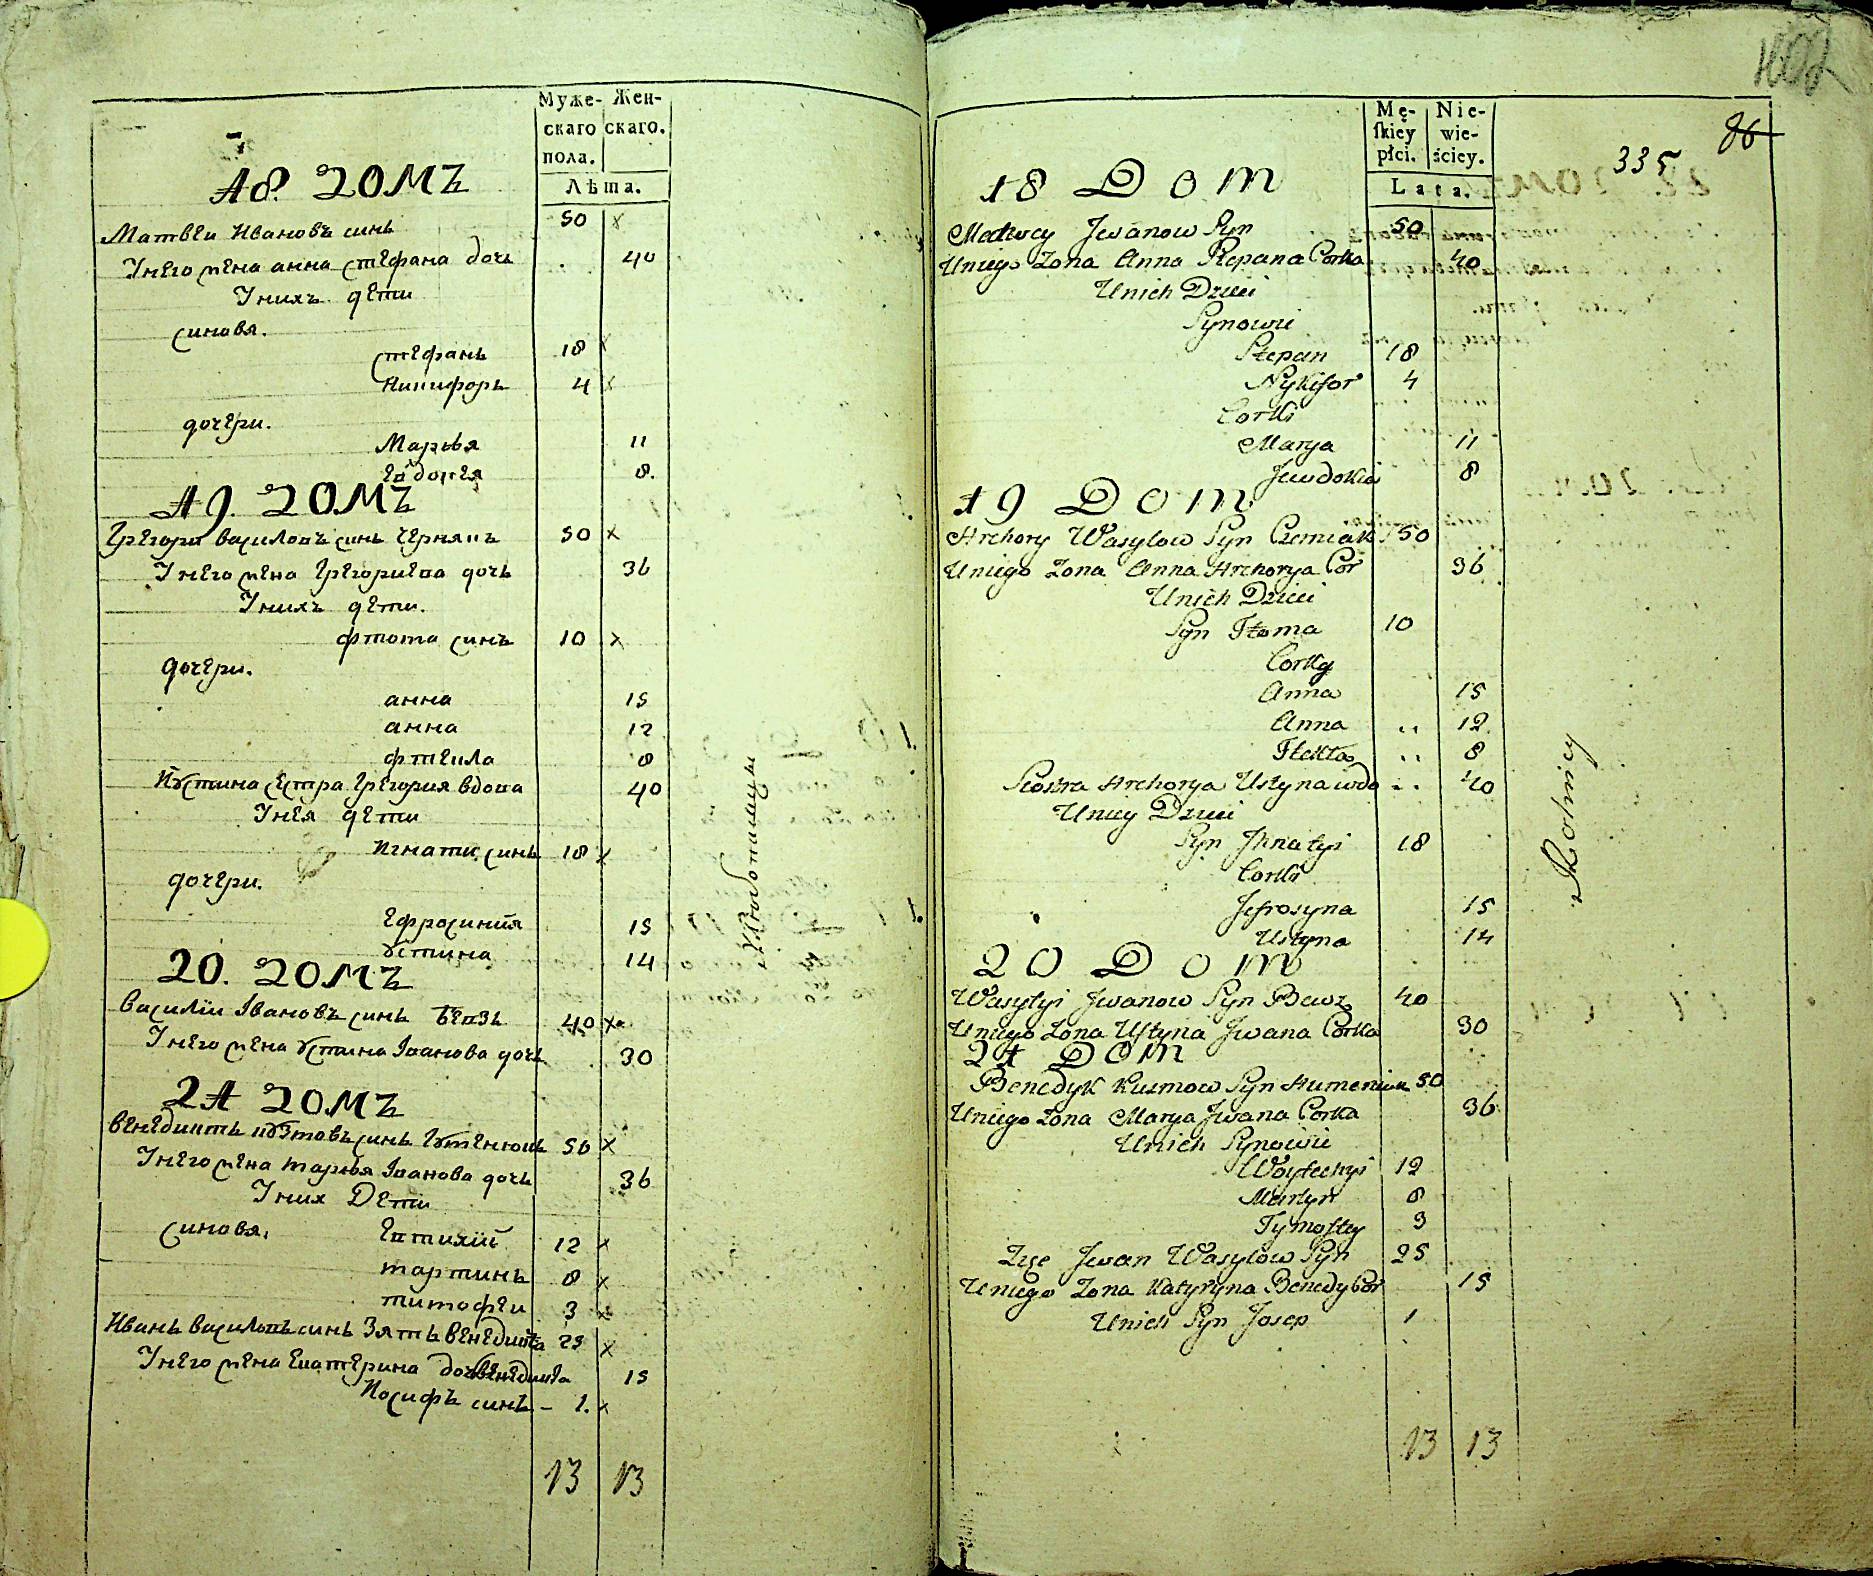 Муже- Жен-
скаго скаго.
пола.
Лѣта.
18. ДОМЪ
Матвеи Ивановъ синь 50 x
Унего жена анна стефана дочь 40
Унихъ дети
синовя.
стефань 18 x
Никифоръ 4 x
дочери.
Марья 11
Евдокея 8.
19. ДОМЪ
Грегори василовъ синь чернякъ 50 x
Унего жена Грегориева дочь 36
Унихъ дети.
фтома синъ 10 x
дочери.
анна 15
анна 12
фтекла 8
Иустина сестра Грегория вдова 40
Унея дети
Игнати синь 18 x
дочери.
Ефросиния 15
Устина 14
20. ДОМЪ
василіи Івановъ синь 40 x
Унего жена устина Іванова дочь 30
21 ДОМЪ
венедиктъ кузмовъ синь Гуменюкъ 50 x
Унего жена марья Іванова дочь 36
Уних Дети
синовя. Евтихій 12 x
мартинъ 8 x
тимофеи 3 x
Иванъ василовъ синь Зять венедикта 25 x
Унего жена Екатерина дочь венедикта 15
Иосифъ синъ – 1. x
13 13
Хлѣбопашцы
Mę- Nie-
skiey wie-
płci. ściey.
Lata.
86
335
18 Dom
Matwey Jwanow Syn 50
Uniego Zona Anna Stepana Corka 40
Unich Dzieci
Synowie
Stepan 18
Nykifor 4
Corki
Marya 11
Jewdokia 8
19 Dom
Hrehory Wasylow Syn Czerniak 50
Uniego Zona Anna Hrehorya Cor 36
Unich Dzieci
Syn Ftoma 10
Corky
Anna 15
Anna .. 12
Ftekla .. 8
Siostra Hrehorya Ustyna wdo .. 40
Uniey Dzieci
Syn Jhnatyi 18
Corki
Jefrosyna 15
Ustyna 14
20 Dom
Wasylyi Jwanow Syn 40
Uniego Zona Ustyna Jwana Corka 30
21 Dom
Benedyk Kuzmow Syn Humeniuk 50
Uniego Zona Marya Jwana Corka 36
Unich Synowie
12
Martyn 8
Tymoftey 3
Zięc Jwan Wasylow Syn 25
Uniego Zona Katyryna Benedy Cor 15
Unich Syn Josep 1
13 13
Rolnicy